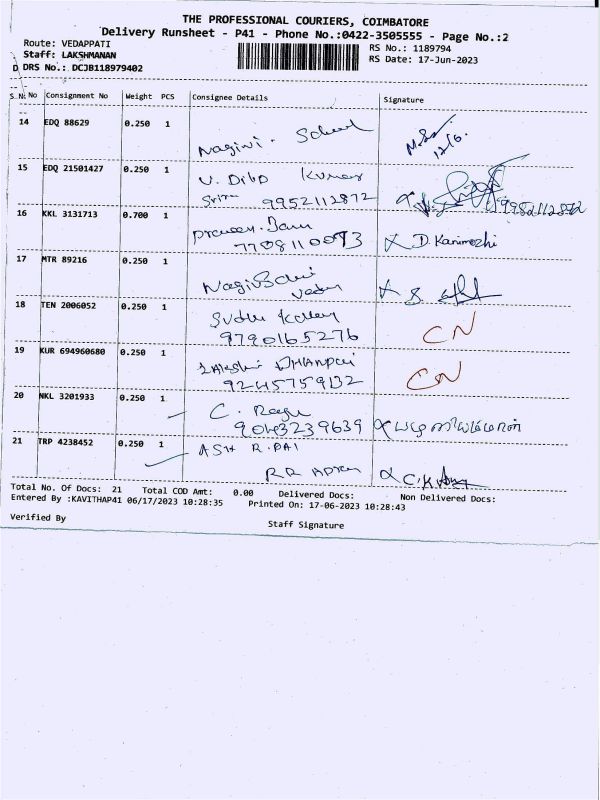 THE PROFESSIONAL COURIERS, COIMBATORE
Delivery Runsheet - P41 - Phone No.:0422-3505555 - Page No.:2
Route: VEDAPPATI
RS No.: 1189794
Staff: LAKSHMANAN
RS Date: 17-Jun-2023
D DRS No.: DCJB118979402
S.No No Consignment No Weight PCS Consignee Details Signature
14 EDQ 88629 0.250 1
School
12/6.
15 EDQ 21501427 0.250 1
V. Kumar
9952112872 9952112872
16 KKL 3131713 0.700 1
7708110093 D. Kanimozhi
17 MTR 89216 0.250 1
18 TEN 2006052 0.250 1
9790165276 CN
19 KUR 694960680 0.250 1
9245759132 CN
20 NKL 3201933 0.250 1
C. Ragu
9043239639
21 TRP 4238452 0.250 1
ASH R.PAI
Total No. Of Docs: 21 Total COD Amt: 0.00 Delivered Docs: Non Delivered Docs:
Entered By :KAVITHAP41 06/17/2023 10:28:35 Printed On: 17-06-2023 10:28:43
Verified By
Staff Signature